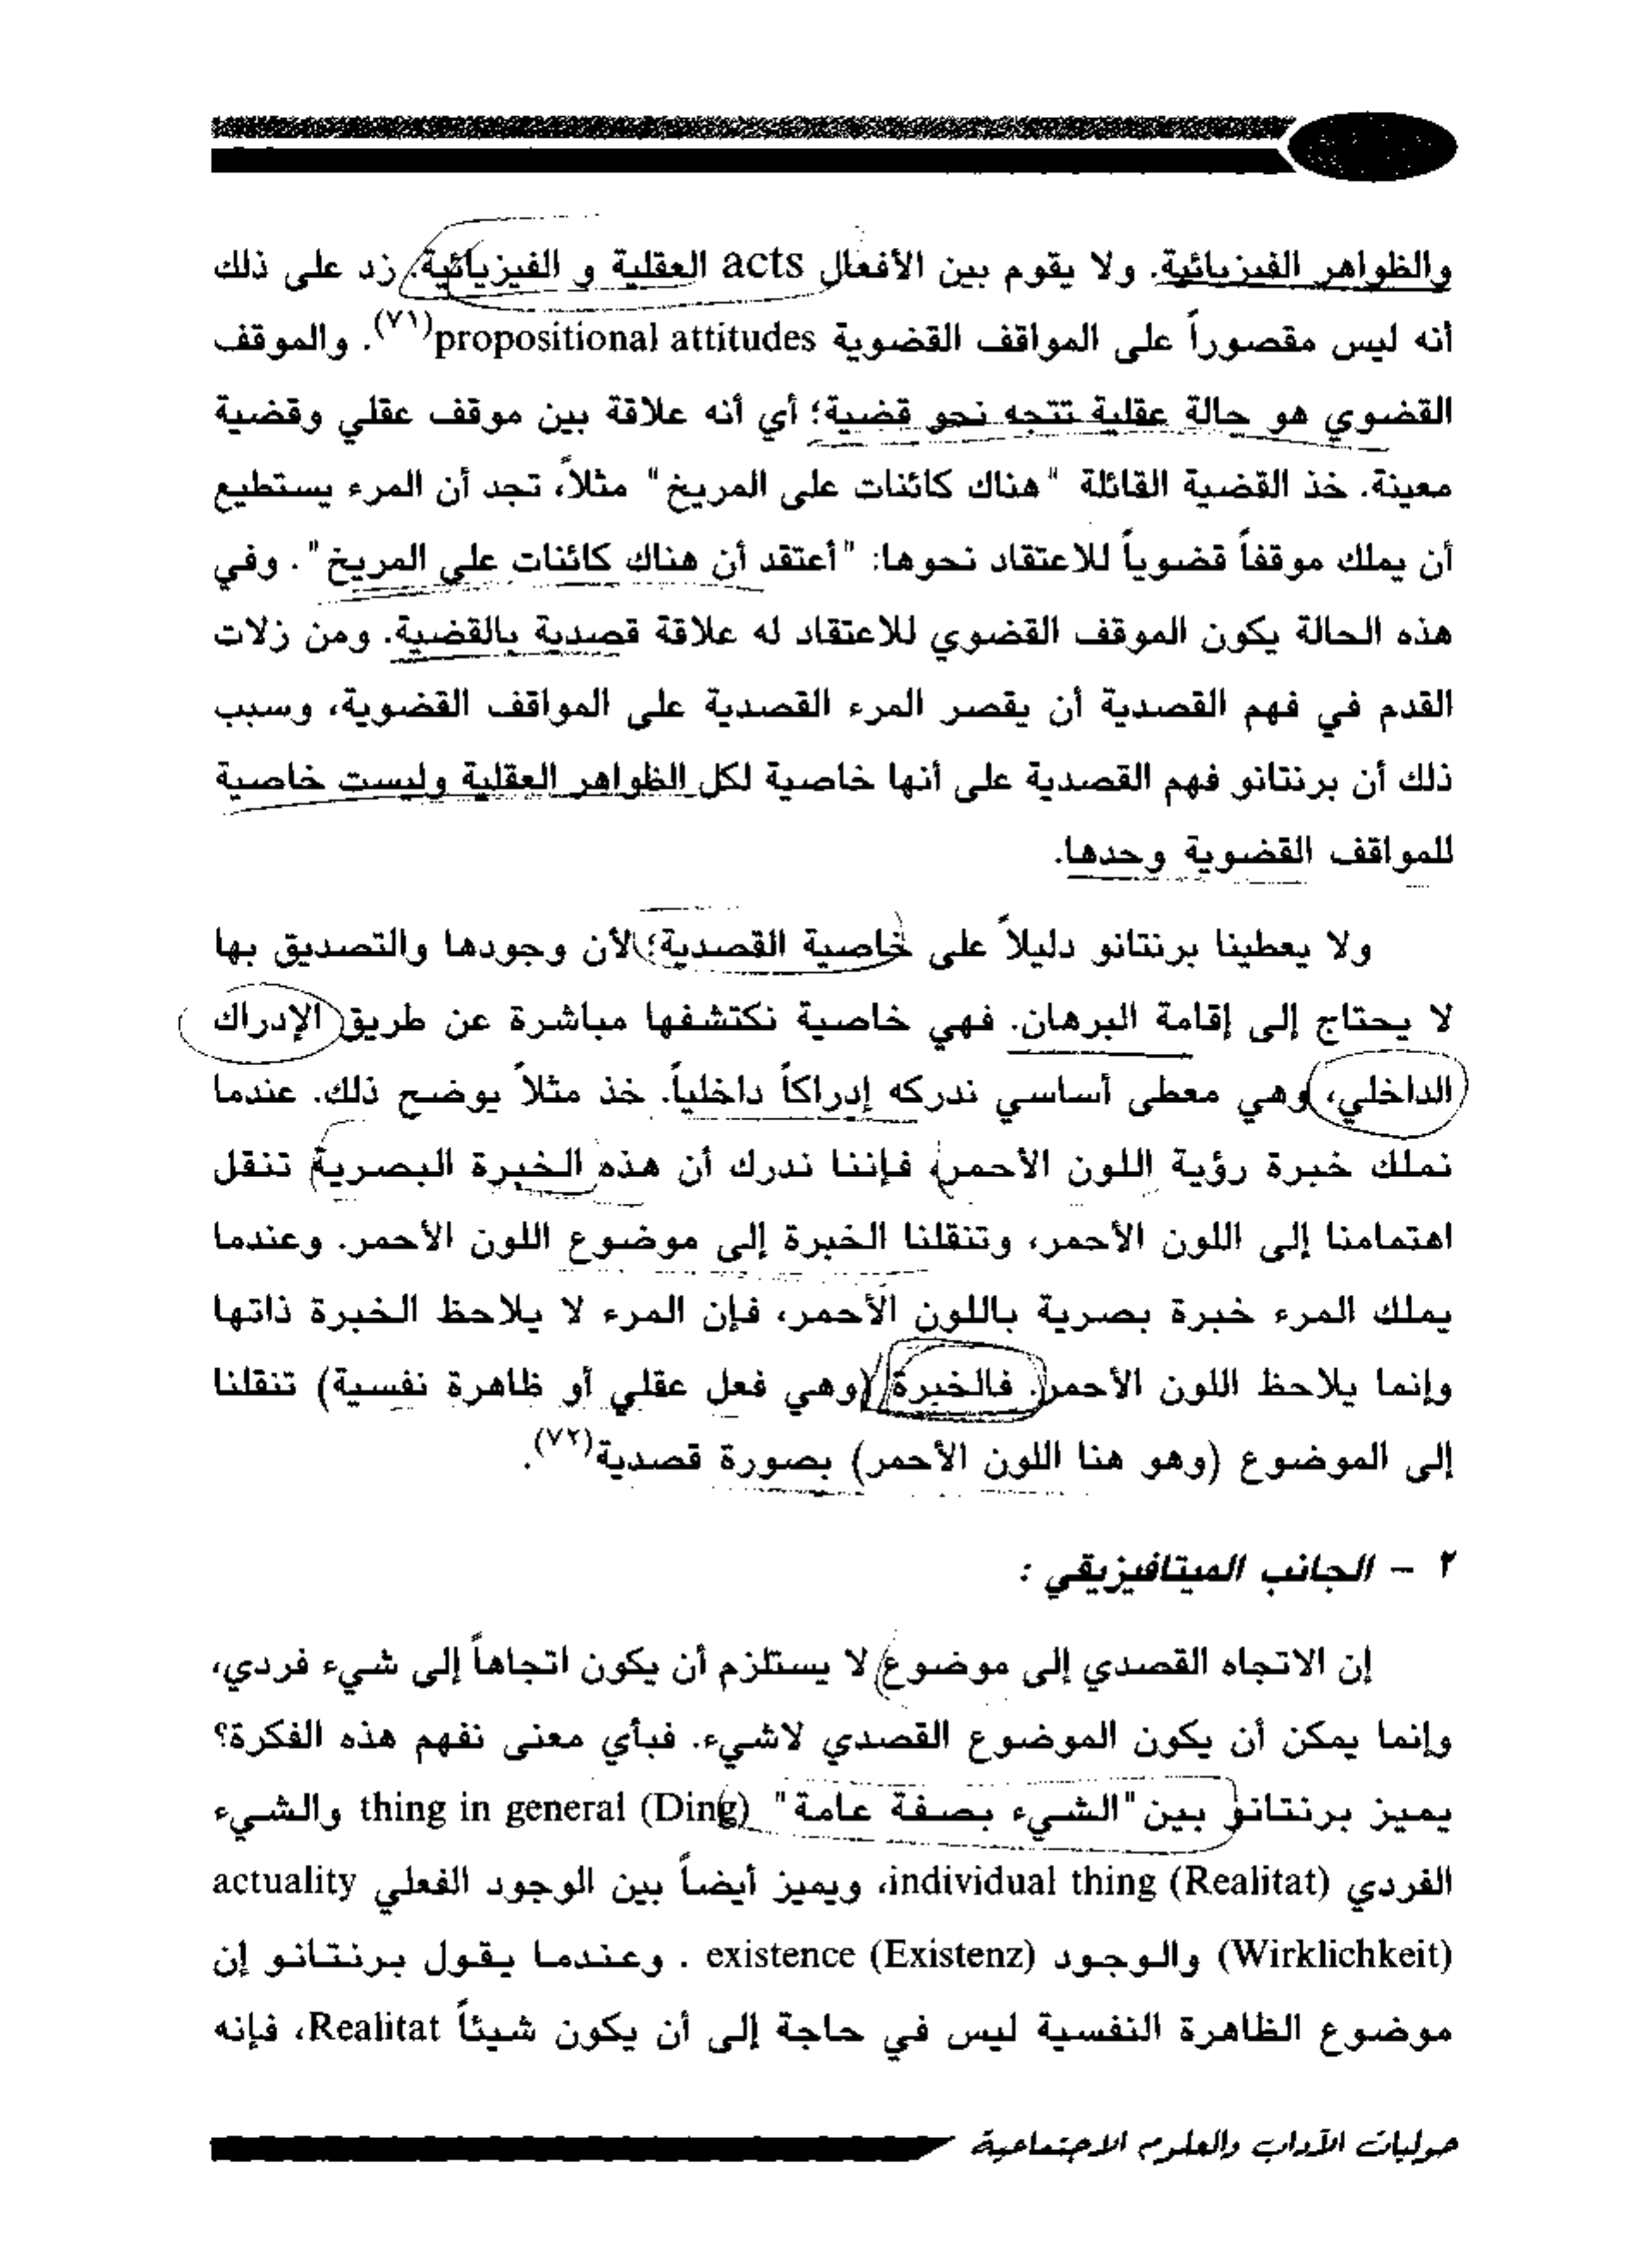 والظواهر الفيزيائية. ولا يقوم بين الأفعال acts العقلية و الفيزيائية. زد على ذلك
أنه ليس مقصوراً على المواقف القضوية propositional attitudes(٧١). والموقف
القضوي هو حالة عقلية تتجه نحو قضية؛ أي أنه علاقة بين موقف عقلي وقضية
معينة. خذ القضية القائلة "هناك كائنات على المريخ" مثلاً، تجد أن المرء يستطيع
أن يملك موقفاً قضوياً للاعتقاد نحوها: "أعتقد أن هناك كائنات على المريخ". وفي
هذه الحالة يكون الموقف القضوي للاعتقاد له علاقة قصدية بالقضية. ومن زلات
القدم في فهم القصدية أن يقصر المرء القصدية على المواقف القضوية، وسبب
ذلك أن برنتانو فهم القصدية على أنها خاصية لكل الظواهر العقلية وليست خاصية
للمواقف القضوية وحدها.
ولا يعطينا برنتانو دليلاً على خاصية القصدية؛ لأن وجودها والتصديق بها
لا يحتاج إلى إقامة البرهان. فهي خاصية نكتشفها مباشرة عن طريق الإدراك
الداخلي، وهي معطى أساسي ندركه إدراكاً داخلياً. خذ مثلاً يوضح ذلك. عندما
نملك خبرة رؤية اللون الأحمر، فإننا ندرك أن هذه الخبرة البصرية تنقل
اهتمامنا إلى اللون الأحمر، وتنقلنا الخبرة إلى موضوع اللون الأحمر. وعندما
يملك المرء خبرة بصرية باللون الأحمر، فإن المرء لا يلاحظ الخبرة ذاتها
وإنما يلاحظ اللون الأحمر. فالخبرة (وهي فعل عقلي أو ظاهرة نفسية) تنقلنا
إلى الموضوع (وهو هنا اللون الأحمر) بصورة قصدية(٧٢).
٢ - الجانب الميتافيزيقي :
إن الاتجاه القصدي إلى موضوع لا يستلزم أن يكون اتجاهاً إلى شيء فردي،
وإنما يمكن أن يكون الموضوع القصدي لاشيء. فبأي معنى نفهم هذه الفكرة؟
يميز برنتانو بين "الشيء بصفة عامة" thing in general (Ding) والشيء
الفردي individual thing (Realitat)، ويميز أيضاً بين الوجود الفعلي actuality
(Wirklichkeit) والوجود existence (Existenz) . وعندما يقول برنتانو إن
موضوع الظاهرة النفسية ليس في حاجة إلى أن يكون شيئاً Realitat، فإنه
حوليات الآداب والعلوم الاجتماعية